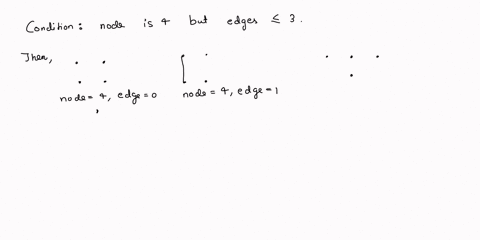 Condition: node is 4 but edges ≤ 3.
Then,
node = 4, edge = 0
node = 4, edge = 1
,